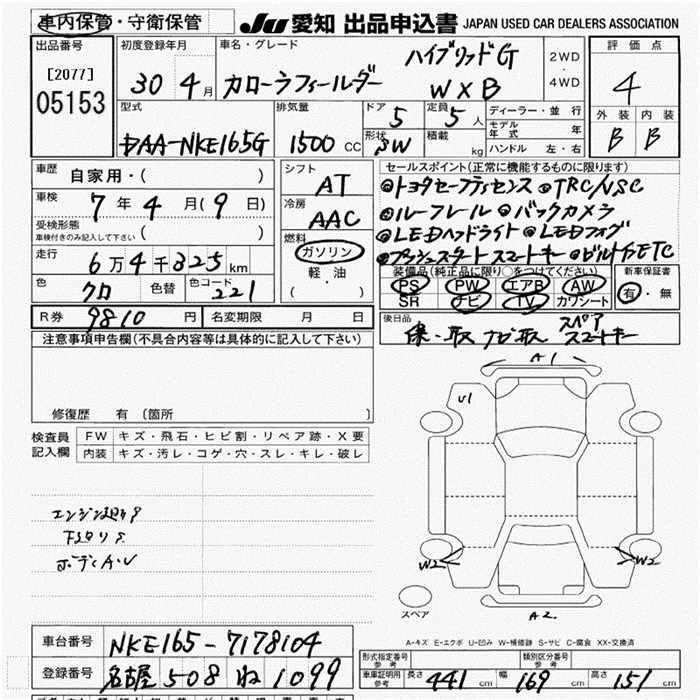 車内保管・守衛保管
JU 愛知 出品申込書 JAPAN USED CAR DEALERS ASSOCIATION
出品番号
[2077]
05153
初度登録年月
30 4月
車名・グレード
カローラフィールダー
ハイブリッドG
W×B
2WD
・
4WD
評価点
4
外装 内装
B B
型式
DAA-NKE165G
排気量
1500 CC
ドア
5
定員
5人
形状
SW
積載
kg
ディーラー・並行
モデル年式 年
ハンドル 左・右
車歴
自家用・( )
車検
7年4月(9日)
受検形態
車検付きのみ記入して下さい ( )
走行
6万4千325km
色
クロ
色替
色コード
221
シフト
AT
冷房
AAC
燃料
ガソリン
軽・油
( )
セールスポイント(正常に機能するものに限ります)
◎トヨタセーフティセンス ◎TRC/VSC
◎ルーフレール ◎バックカメラ
◎LEDヘッドライト ◎LEDフォグ
◎プッシュスタート スマートキー ◎ビルトインETC
装備品(純正品に限り○をつけてください)
PS PW エアB AW
SR ナビ TV カワシート
新車保証書
有・無
R券 9810円
名変期限 月 日
後日品
保・取 ナビ取 スペアスマートキー
注意事項申告欄(不具合内容等は具体的に記入して下さい)
修復歴 有 〔箇所 〕
検査員記入欄
FW キズ・飛石・ヒビ割・リペア跡・X要
内装 キズ・汚レ・コゲ・穴・スレ・キレ・破レ
ボディA・U
A1
U1
W2
W2
A2
スペア
A-キズ E-エクボ U-凹み W-補修跡 S-サビ C-腐食 XX-交換済
車台番号
NKE165-7178104
登録番号
名古屋 508 ね 1099
型式指定番号 参考
類別区分番号 参考
車庫証明用参考
長さ 441 cm 幅 169 cm 高さ 151 cm